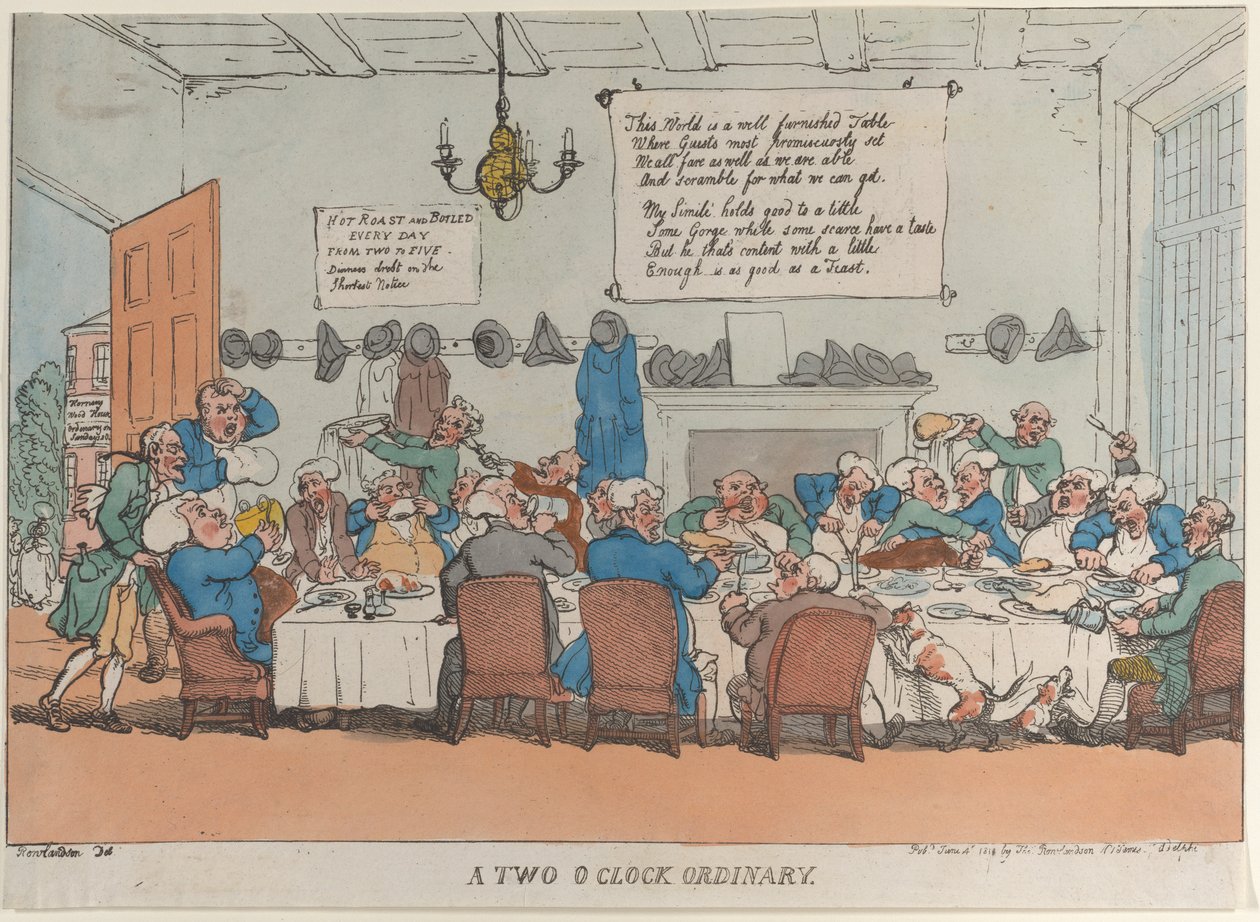 This World is a well furnished Table
Where Guests most promiscuosly set
We all fare as well as we are able
And scramble for what we can get.
My Simile holds good to a tittle
Some Gorge while some scarce have a taste
But he thats content with a little
Enough is as good as a Feast.
HOT ROAST AND BOILED
EVERY DAY
FROM TWO TO FIVE.
Dinners drest on the
Shortest Notice
Hornsey
Wood House
Ordinary on
Sundays
Rowlandson Del
Pubd. June 4th 1811 by Thos. Rowlandson N 1 James St. Adelphi
A TWO O CLOCK ORDINARY.